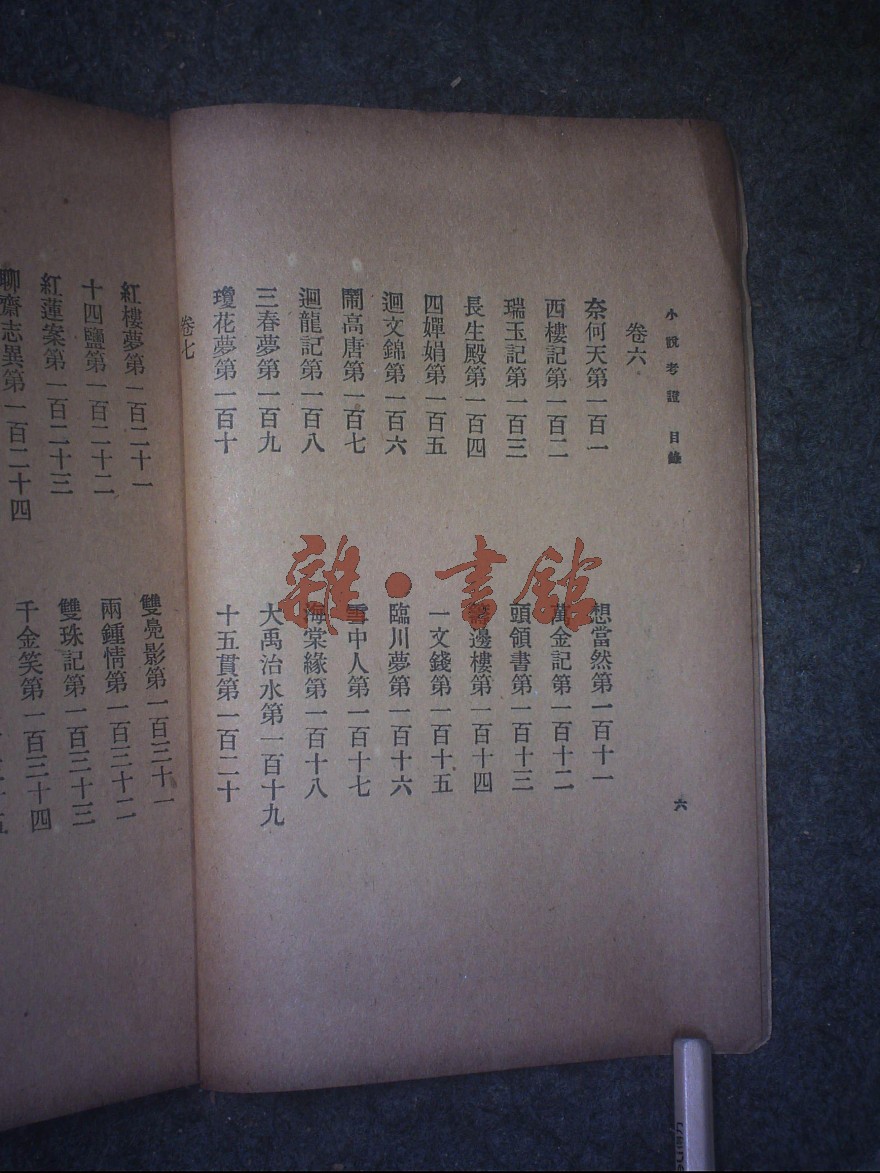 小說考證 目錄
六
卷六
奈何天第一百一
西樓記第一百二
瑞玉記第一百三
長生殿第一百四
四嬋娟第一百五
迴文錦第一百六
鬧高唐第一百七
迴龍記第一百八
三春夢第一百九
瓊花夢第一百十
想當然第一百十一
萬金記第一百十二
頭領書第一百十三
邊樓第一百十四
一文錢第一百十五
臨川夢第一百十六
雪中人第一百十七
海棠緣第一百十八
大禹治水第一百十九
十五貫第一百二十
卷七
紅樓夢第一百二十一
十四鹽第一百二十二
紅蓮案第一百二十三
聊齋志異第一百二十四
雙鳧影第一百三十一
兩鍾情第一百三十二
雙珠記第一百三十三
千金笑第一百三十四
雜·書館